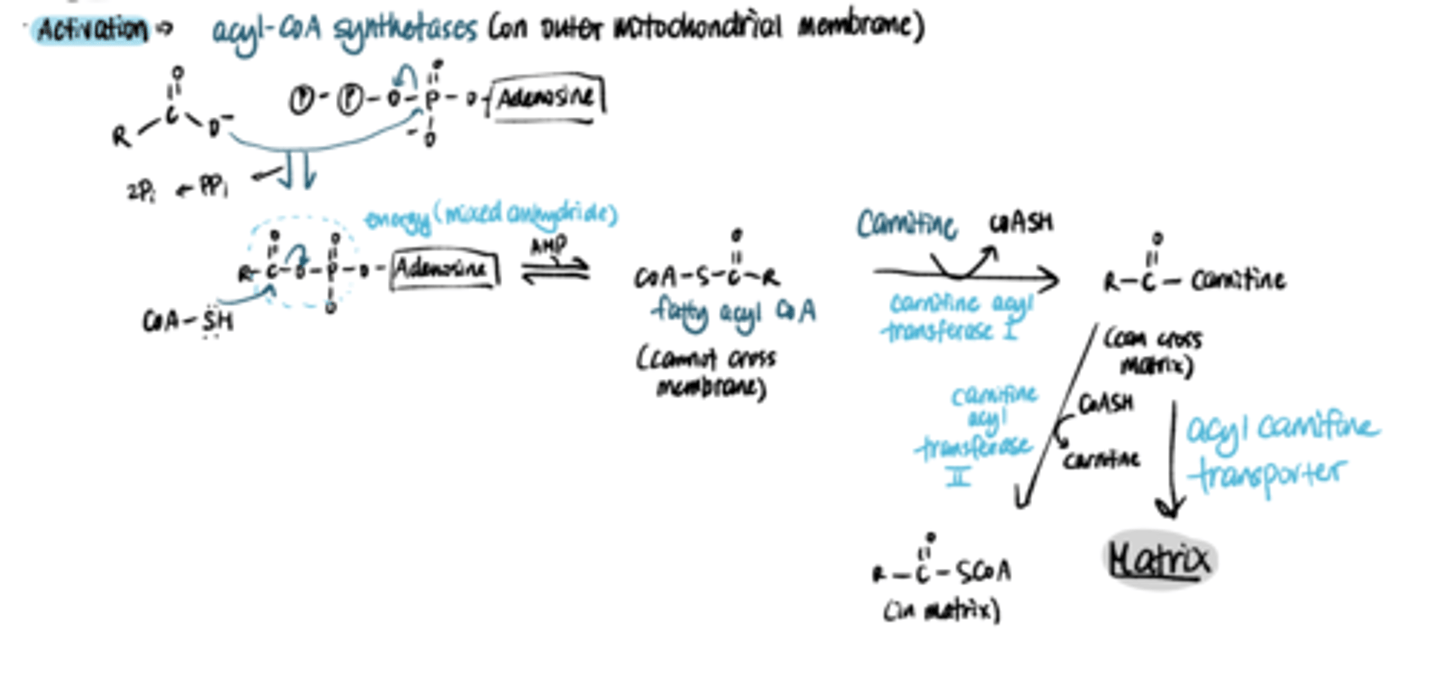 Activation ⇒ acyl-CoA synthetases (on outer mitochondrial membrane)
O
R C O⁻
P - P - O - P - O - Adenosine
O
-O
2Pi ← PPi
energy (mixed anhydride)
O O
R - C - O - P - O - Adenosine
O
CoA - SH
AMP
O
CoA - S - C - R
fatty acyl CoA
(cannot cross
membrane)
Carnitine CoASH
carnitine acyl
transferase I
O
R - C - Carnitine
(can cross
matrix)
carnitine
acyl
transferase
II
CoASH
carnitine
acyl carnitine
transporter
Matrix
O
R - C - SCoA
(in matrix)